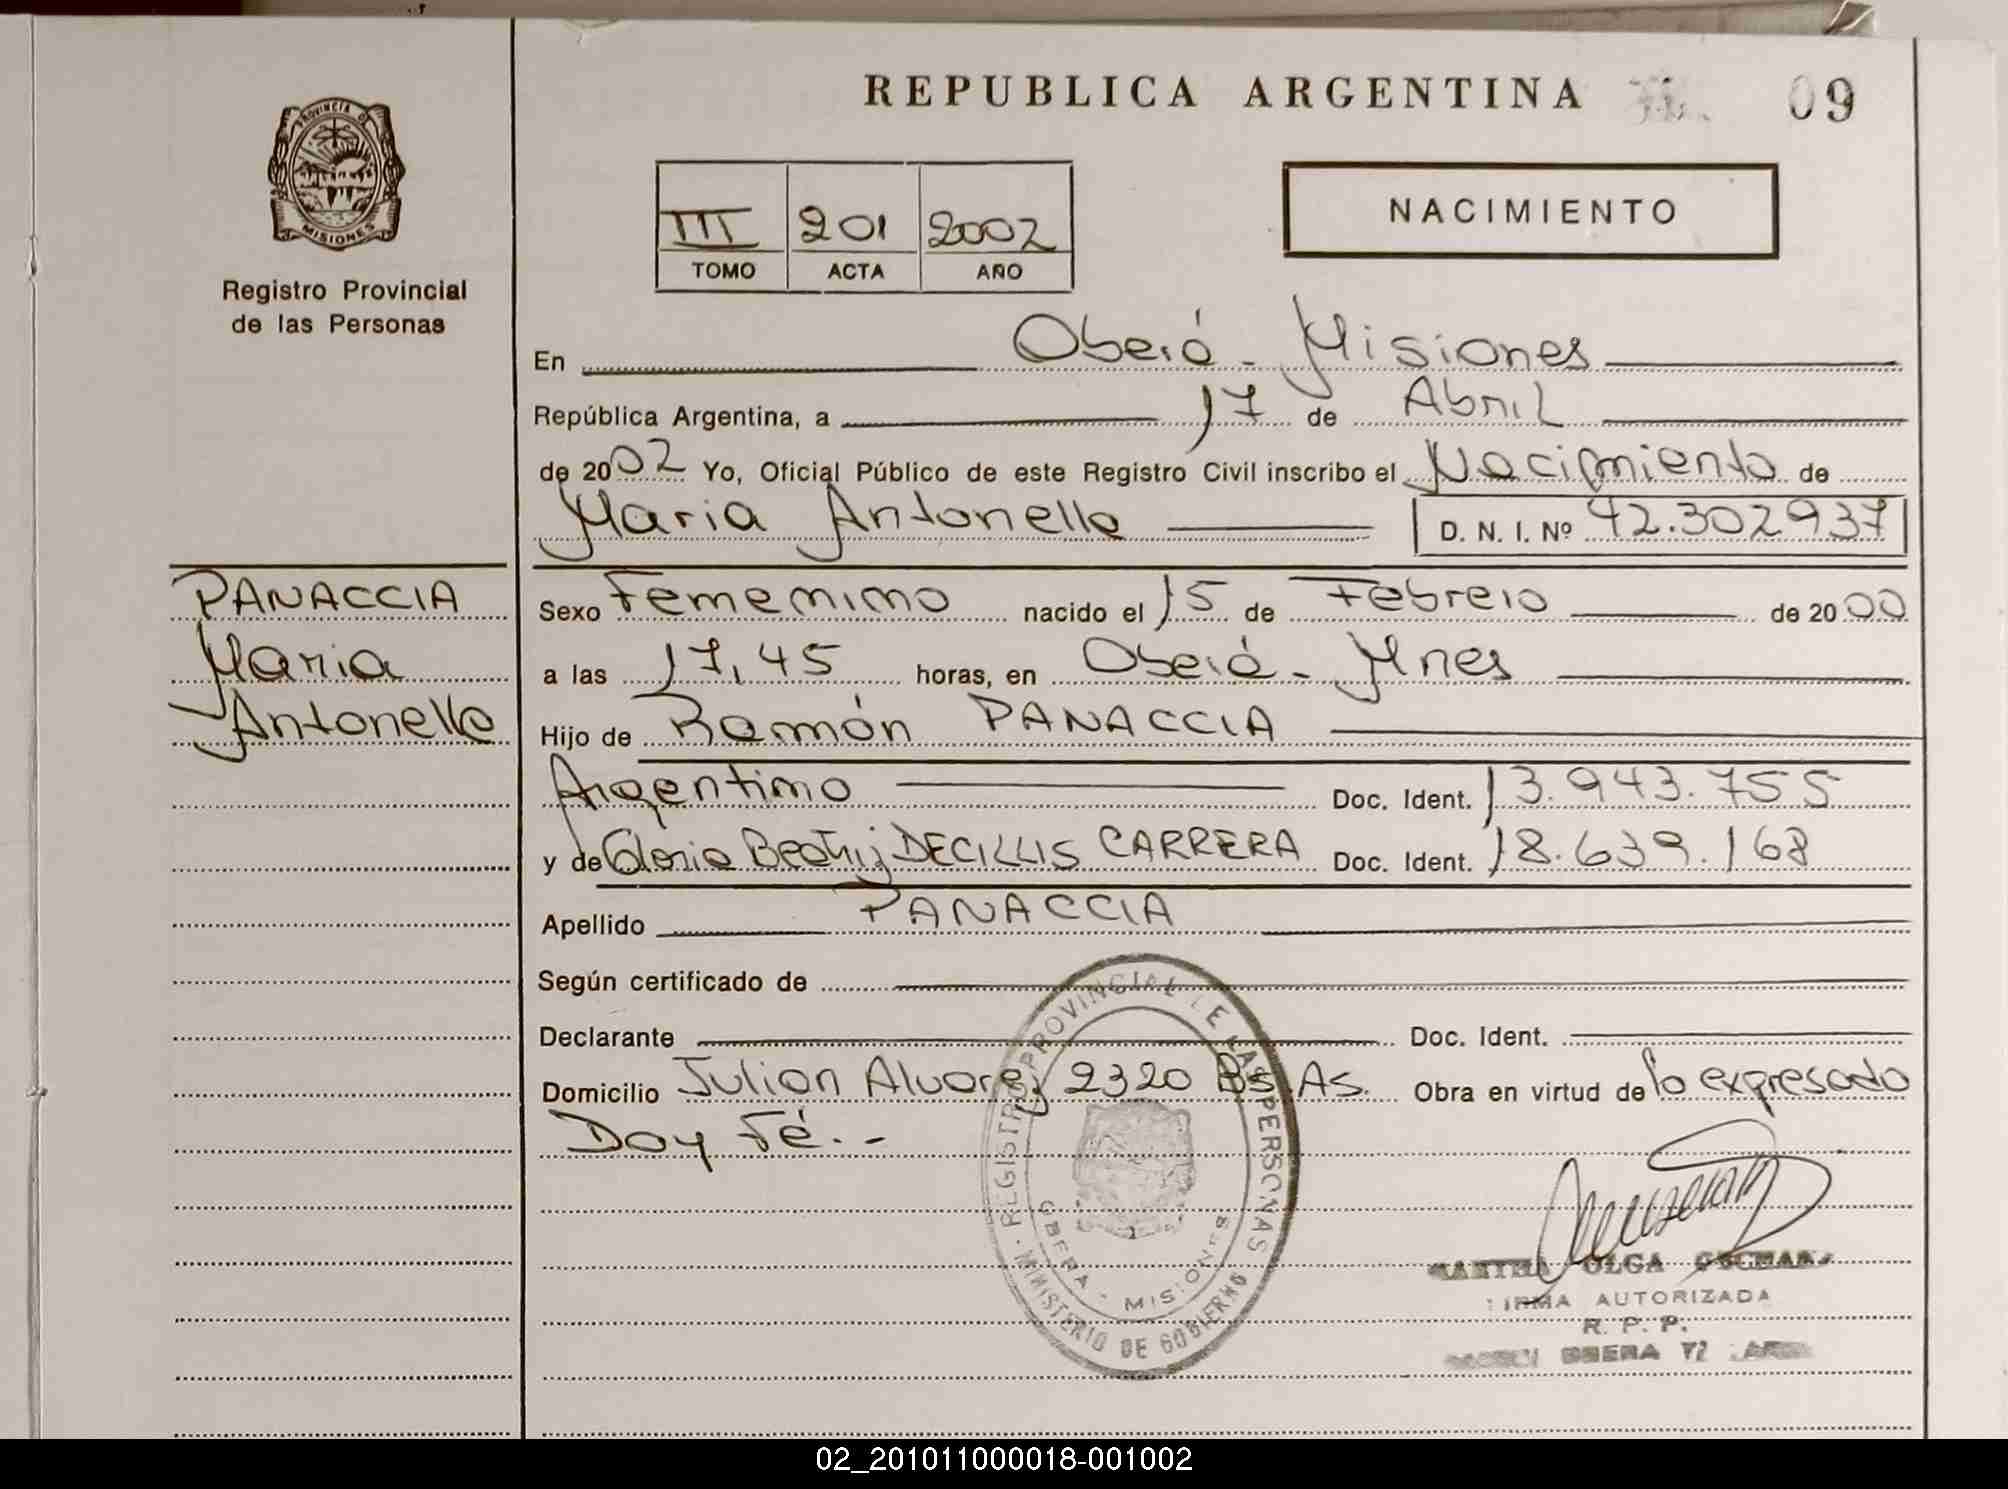 REPUBLICA ARGENTINA 09
PROVINCIA DE
MISIONES
Registro Provincial
de las Personas
III 201 2002
TOMO ACTA AÑO
NACIMIENTO
En Oberá - Misiones
República Argentina, a 17 de Abril
de 2002 Yo, Oficial Público de este Registro Civil inscribo el Nacimiento de
Maria Antonella D. N. I. Nº 42.302937
PANACCIA
Maria
Antonella
Sexo Femenino nacido el 15 de Febrero de 2000
a las 17,45 horas, en Oberá - Mnes
Hijo de Ramón PANACCIA
Argentino Doc. Ident. 13.943.755
y de Gloria Beatriz DECILLIS CARRERA Doc. Ident. 18.639.168
Apellido PANACCIA
Según certificado de
Declarante Doc. Ident.
Domicilio Julian Alvarez 2320 Bs. As. Obra en virtud de lo expresado
Doy Fé.-
REGISTRO PROVINCIAL DE LAS PERSONAS
OBERA - MISIONES
MINISTERIO DE GOBIERNO
MARTHA OLGA
FIRMA AUTORIZADA
R. P. P.
OBERA
02_201011000018-001002